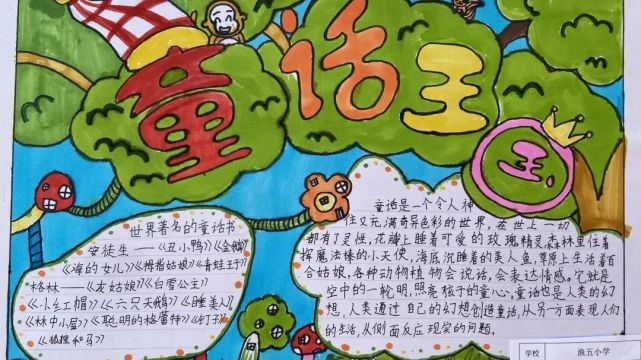 童话王
王
世界著名的童话书
安徒生——《丑小鸭》《金
《海的女儿》《拇指姑娘》《青蛙王子》
格林——《灰姑娘》《白雪公主》
《小红帽》《六只天鹅》《睡美人》
《林中小屋》《聪明的格蕾特》《钉子》
《狐狸和马》
童话是一个令人神
往又充满奇异色彩的世界,在世上一切
都有了灵性,花瓣上睡着可爱的玫瑰精灵,森林里住着
挥魔法棒的小天使,海底沉睡着的美人鱼,草原上生活着百
合姑娘,各种动植物会说话,会表达情感。它就是
空中的一轮明,照亮孩子的童心。童话也是人类的幻
想,人类通过自己的幻想创造童话,从另一方面表现人们
的生活,从侧面反应现实的问题。
学校 渔五小学